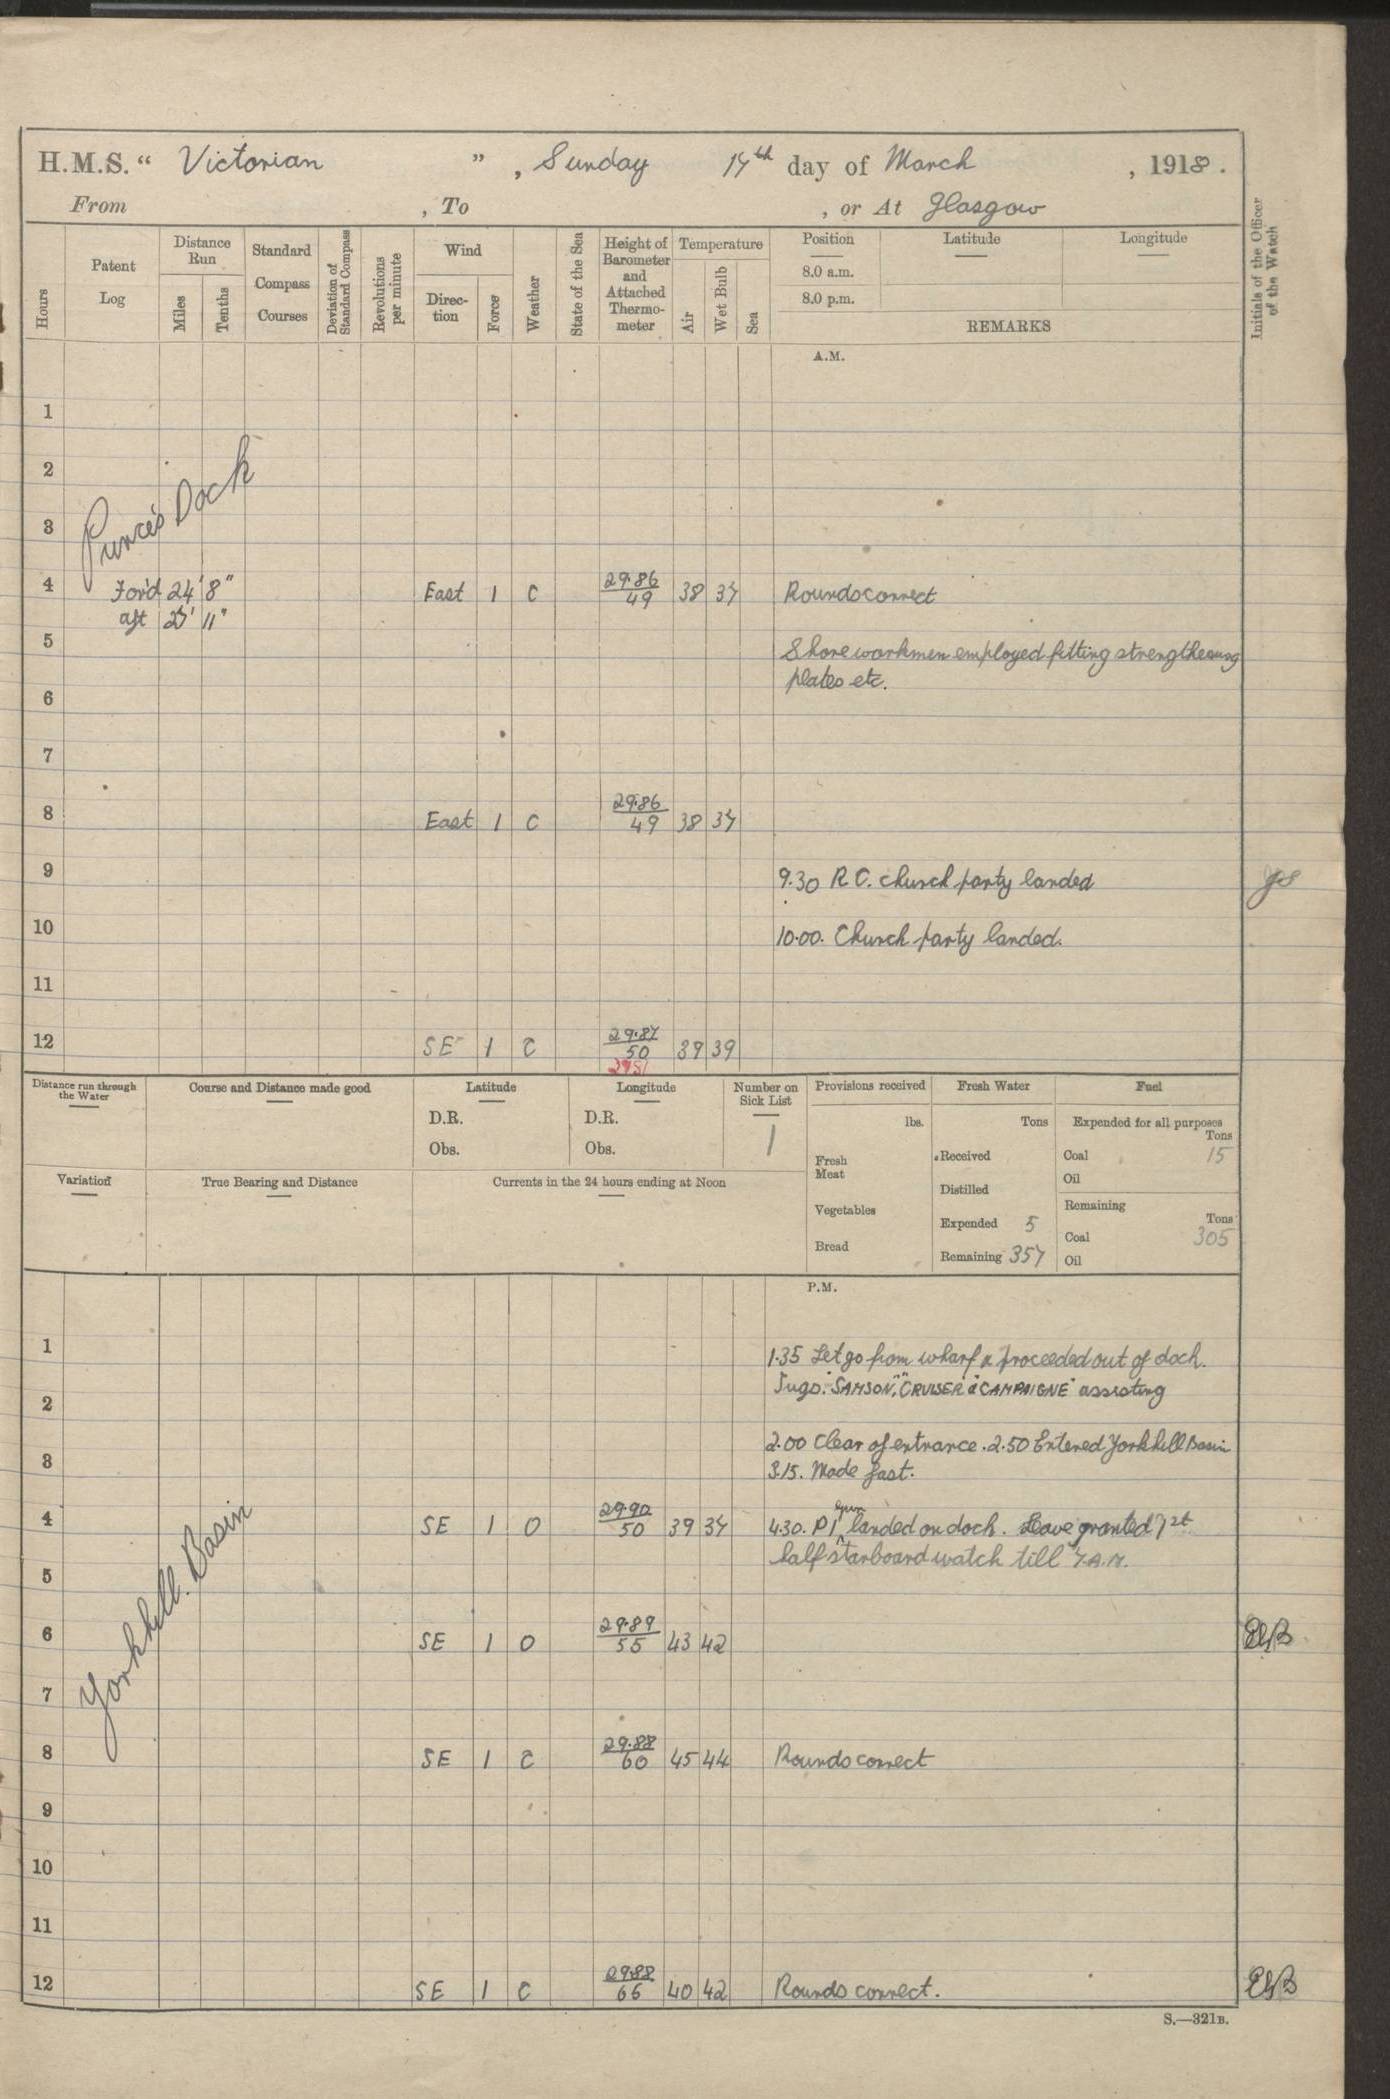 H.M.S. “ Victorian ” , Sunday 17th day of March , 1918.
From , To , or At Glasgow
Hours
Patent Log
Distance Run
Miles
Tenths
Standard Compass Courses
Deviation of Standard Compass
Revolutions per minute
Wind
Direc-tion
Force
Weather
State of the Sea
Height of Barometer and Attached Thermo-meter
Temperature
Air
Wet Bulb
Sea
Position
8.0 a.m.
8.0 p.m.
Latitude
Longitude
REMARKS
Initials of the Officer of the Watch
A.M.
1
2
3
Princes Dock
4 For'd 24' 8" East 1 C 29.86 49 38 37 Rounds correct
aft 27' 11"
5 Shore workmen employed fitting strengthening
plates etc.
6
7
8 East 1 C 29.86 49 38 37
9 9.30 R C. church party landed
10 10.00. Church party landed.
11
12 SE 1 C 29.87 50 39 39
2951
Distance run through the Water
Course and Distance made good
Latitude
D.R.
Obs.
Longitude
D.R.
Obs.
Number on Sick List
1
Provisions received
lbs.
Fresh Meat
Vegetables
Bread
Fresh Water
Tons
Received
Distilled
Expended 5
Remaining 357
Fuel
Expended for all purposes
Tons
Coal 15
Oil
Remaining
Tons
Coal 305
Oil
Variation
True Bearing and Distance
Currents in the 24 hours ending at Noon
P.M.
1 1.35 Let go from wharf & proceeded out of dock.
2 Tugs. "SAMSON," "CRUISER" & "CAMPAIGNE" assisting
2.00 Clear of entrance. 2.50 Entered Yorkhill Basin
3 3.15. Made fast.
4 SE 1 O 29.90 50 39 37 4.30. P1 gun landed on dock. Leave granted 1st
half starboard watch till 7.A.M.
5
Yorkhill Basin
6 SE 1 O 29.89 55 43 42 EGB
7
8 SE 1 C 29.88 60 45 44 Rounds correct
9
10
11
12 SE 1 C 29.88 66 40 42 Rounds correct. EGB
S.—321B.